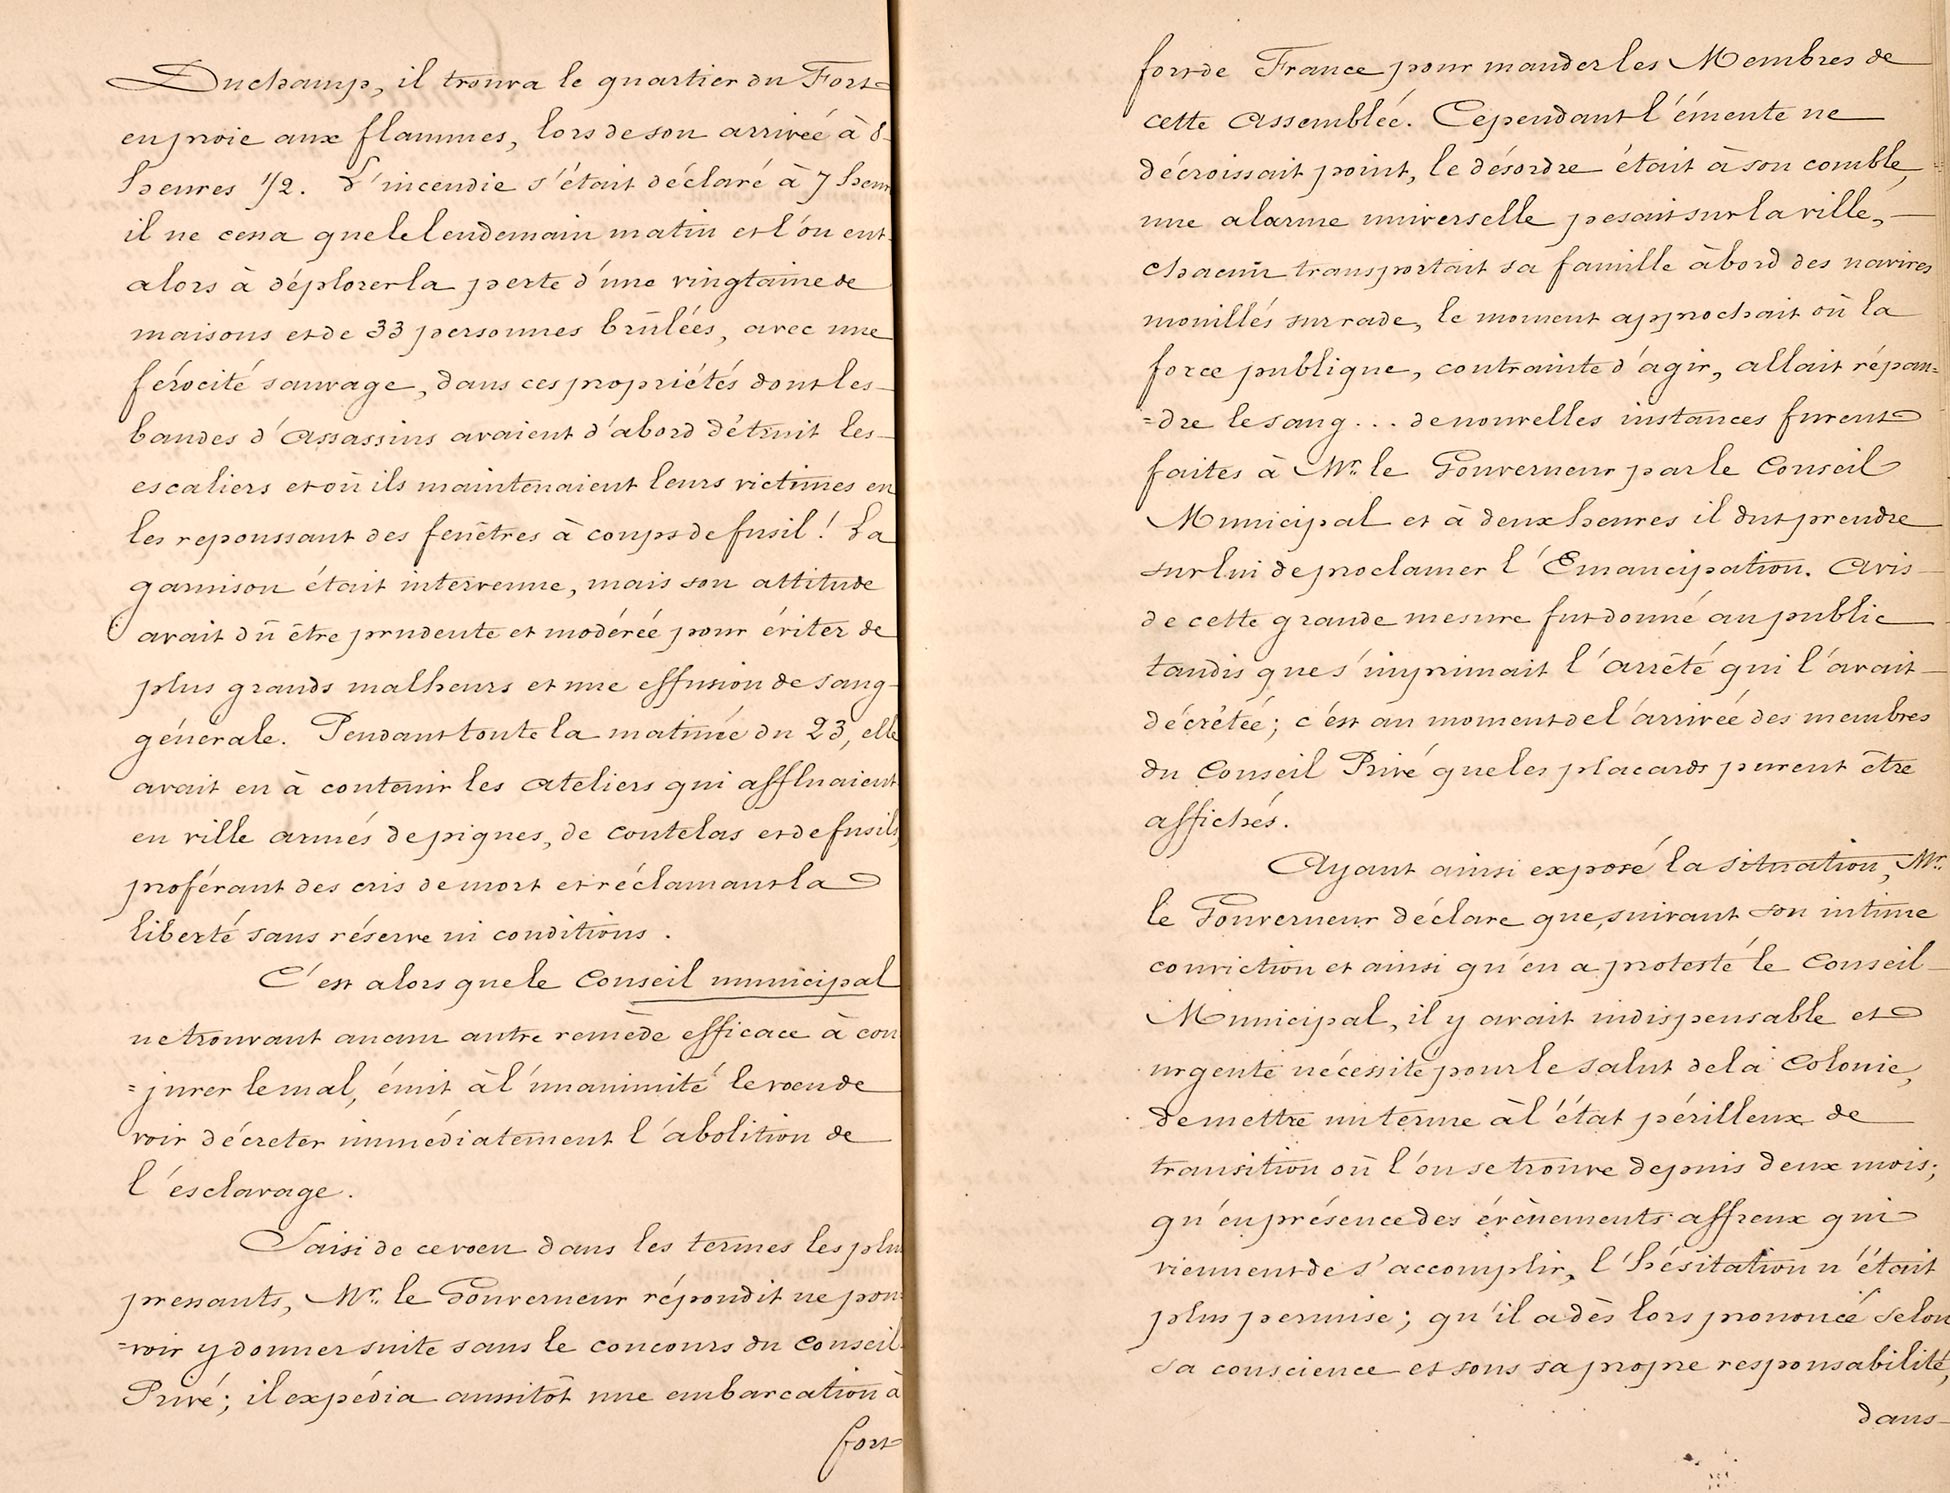 Duchamp, il trouva le quartier du Fort
en proie aux flammes, lors de son arrivée à 8
heures 1/2. L'incendie s'était déclaré à 7 heur
il ne cessa que le lendemain matin et l'on eut
alors à déplorer la perte d'une vingtaine de
maisons et de 33 personnes brûlées, avec une
férocité sauvage, dans ces propriétés dont les
bandes d'assassins avaient d'abord détruit les
escaliers et où ils maintenaient leurs victimes en
les repoussant des fenêtres à coups de fusil! La
garnison était intervenue, mais son attitude
avait dû être prudente et modérée pour éviter de
plus grands malheurs et une effusion de sang
générale. Pendant toute la matinée du 23, elle
avait eu à contenir les ateliers qui affluaient
en ville armés de piques, de coutelas et de fusils,
proférant des cris de mort et réclamant la
liberté sans réserve ni conditions.
C'est alors que le Conseil municipal
ne trouvant aucun autre remède efficace à con
=jurer le mal, émit à l'unanimité le voeu de
voir décréter immédiatement l'abolition de
l'esclavage.
Saisi de ce voeu dans les termes les plus
pressants, Mr. le Gouverneur répondit ne pou=
=voir y donner suite sans le concours du Conseil
Privé; il expédia aussitôt une embarcation à
fort
fort de France pour mander les Membres de
cette Assemblée. Cependant l'émeute ne
décroissait point, le désordre était à son comble,
une alarme universelle pesait sur la ville,
chacun transportait sa famille à bord des navires
mouillés sur rade, le moment approchait où la
force publique, contrainte d'agir, allait répan=
=dre le sang... de nouvelles instances furent
faites à Mr. le Gouverneur par le Conseil
Municipal et à deux heures il dut prendre
sur lui de proclamer l'Emancipation. Avis
de cette grande mesure fut donné au public
tandis que s'imprimait l'arrêté qui l'avait
décrétée; c'est au moment de l'arrivée des membres
du Conseil Privé que les placards purent être
affichés.
Ayant ainsi exposé la situation, Mr.
le Gouverneur déclare que, suivant son intime
conviction et ainsi qu'en a protesté le Conseil
Municipal, il y avait indispensable et
urgente nécessité pour le salut de la Colonie,
de mettre un terme à l'état périlleux de
transition où l'on se trouve depuis deux mois;
qu'en présence des évènements affreux qui
viennent de s'accomplir, l'hésitation n'était
plus permise; qu'il a dès lors prononcé selon
sa conscience et sous sa propre responsabilité,
dans